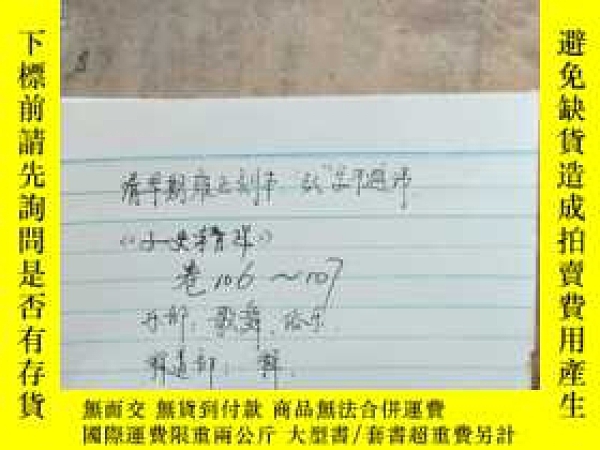 下標前請先詢問是否有存貨
清早期雍正刻本
《子史精華》
卷106～107
乐部：歌舞
部：
避免缺貨造成拍賣費用產生
無面交 無貨到付款 商品無法合併運費
國際運費限重兩公斤 大型書/套書超重費另計